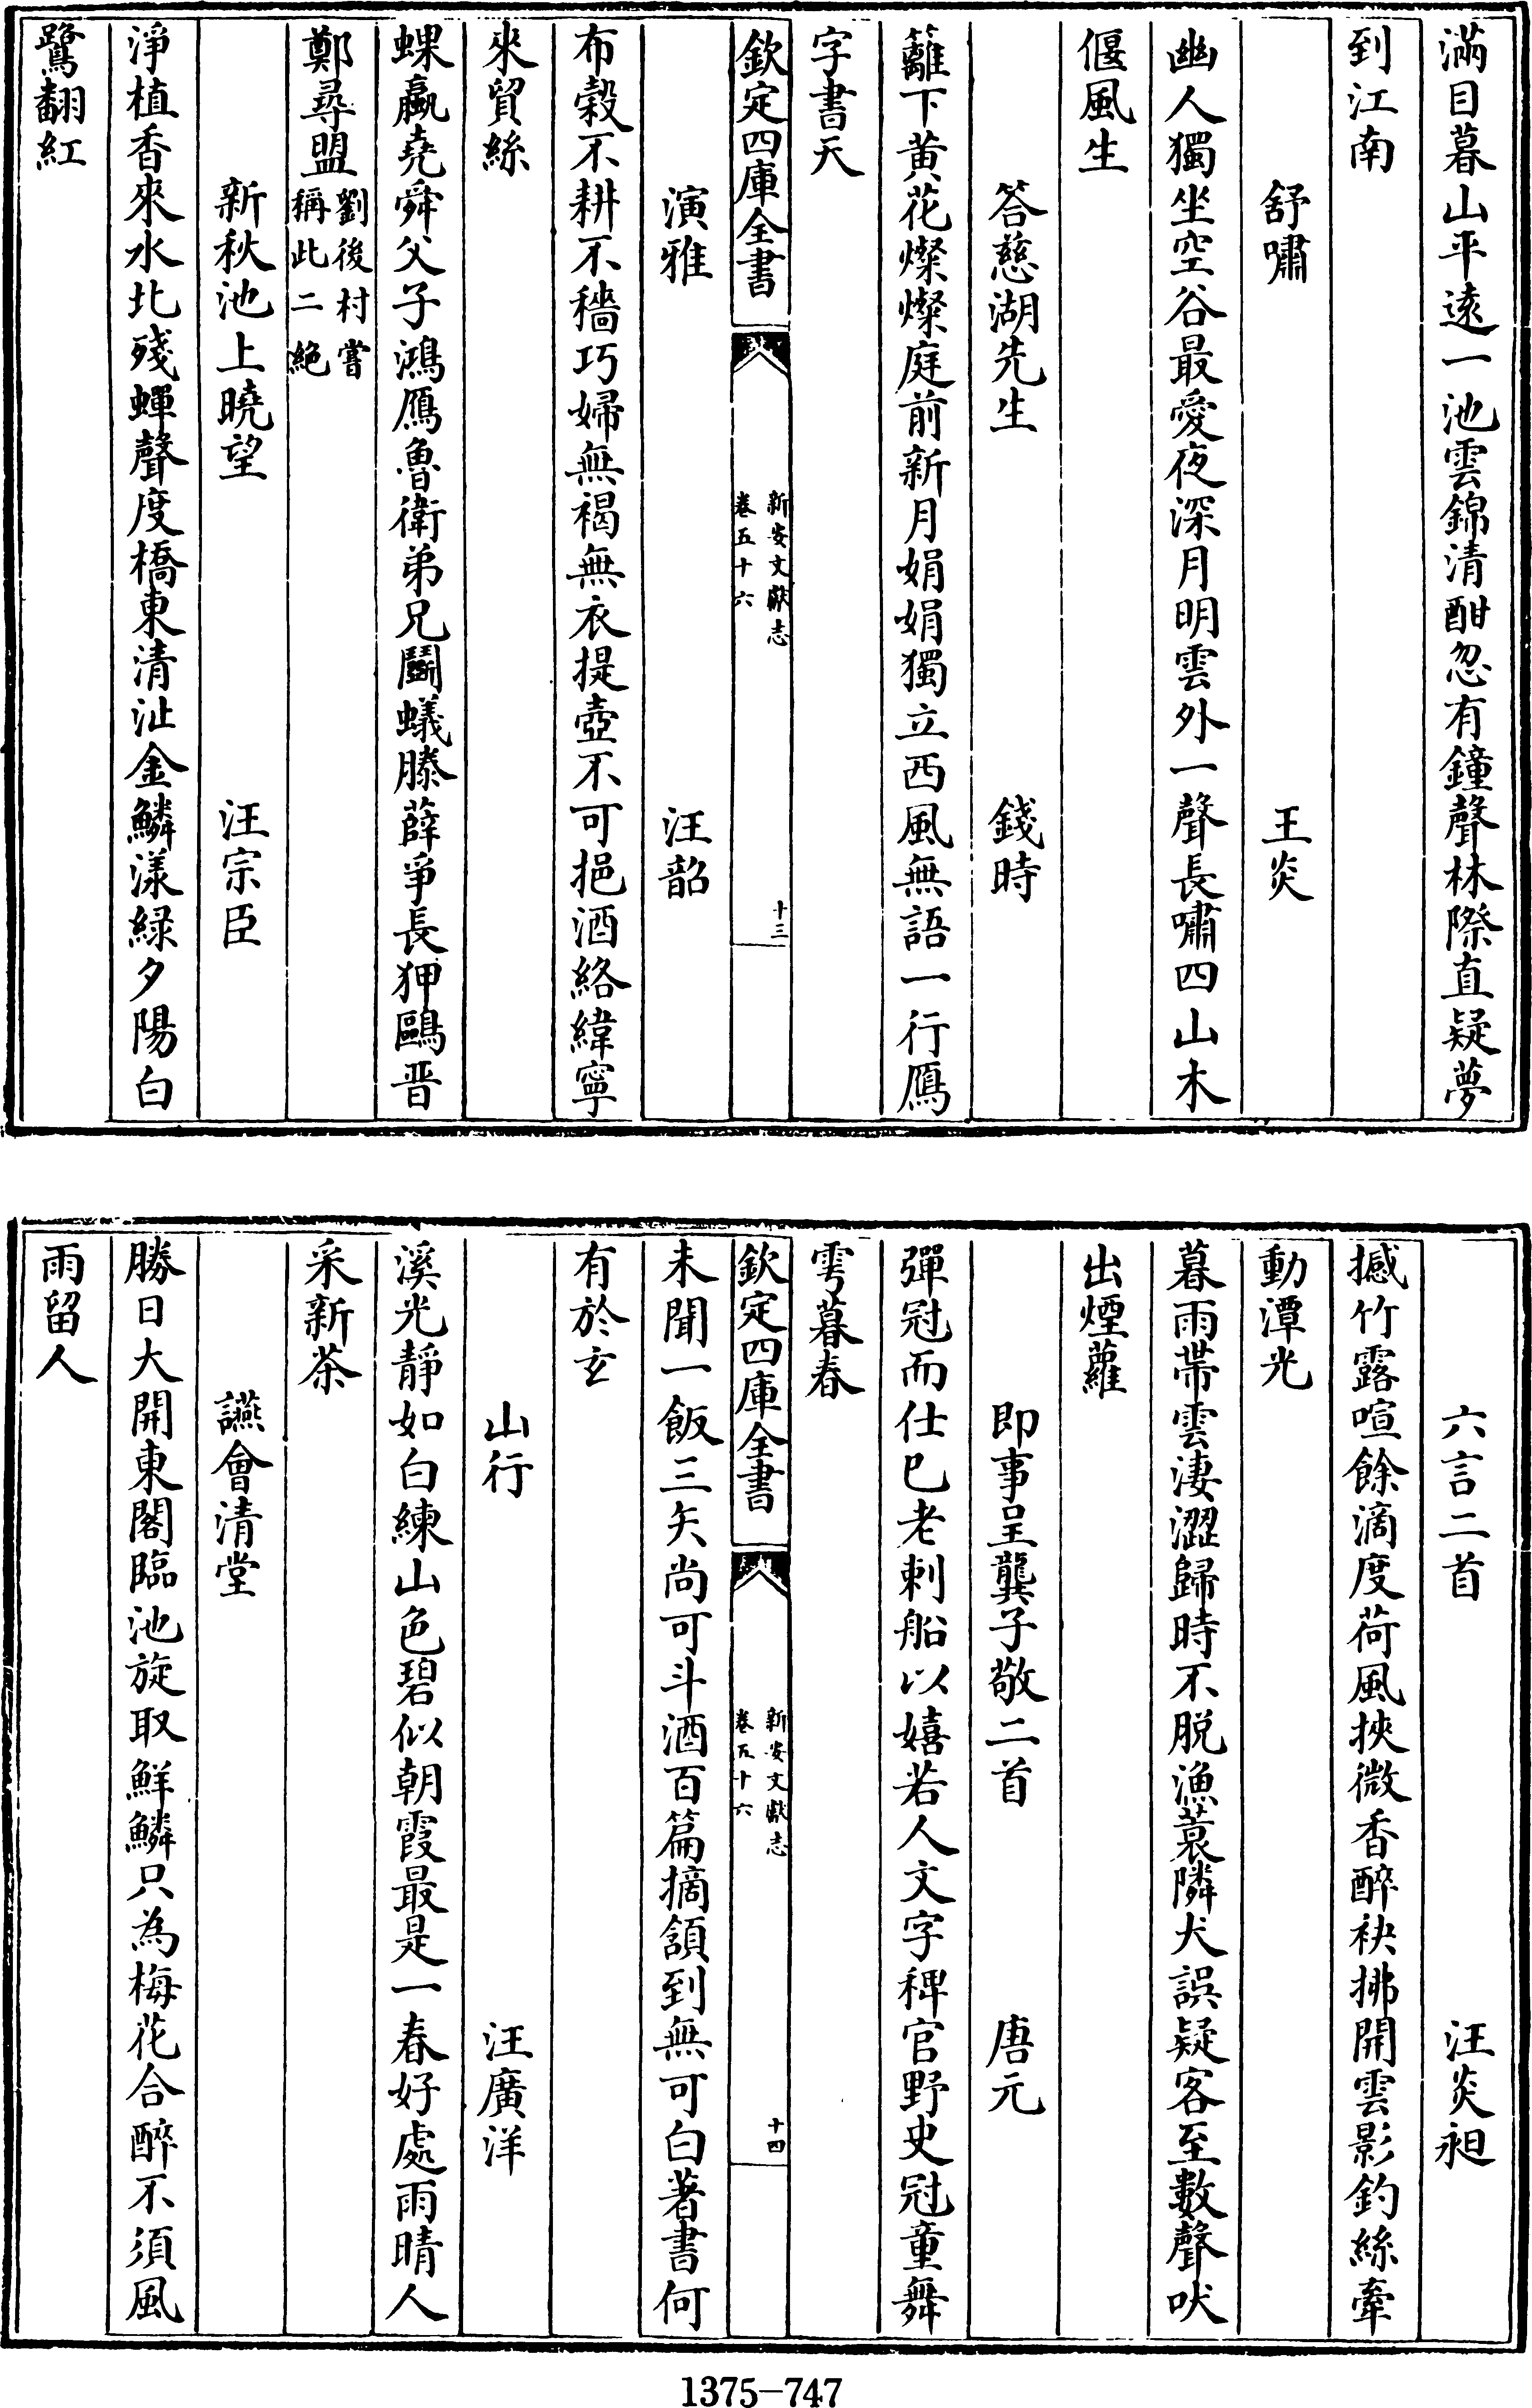 滿目暮山平遠一池雲錦清酣忽有鐘聲林際直疑夢
到江南
舒嘯　王炎
幽人獨坐空谷最愛夜深月明雲外一聲長嘯四山木
偃風生
答慈湖先生　錢時
籬下黄花燦燦庭前新月娟娟獨立西風無語一行鴈
字書天
欽定四庫全書
新安文獻志
卷五十六
十三
演雅　汪韶
布穀不耕不穡巧婦無褐無衣提壺不可挹酒絡緯寧
來貿絲
蜾蠃堯舜父子鴻鴈魯衛弟兄鬬蟻滕薛爭長狎鷗晋
鄭尋盟
劉後村嘗
稱此二絶
新秋池上曉望　汪宗臣
淨植香來水北殘蟬聲度橋東清沚金鱗漾緑夕陽白
鷺翻紅
六言二首　汪炎昶
撼竹露喧餘滴度荷風挾微香醉袂拂開雲影釣絲牽
動潭光
暮雨帶雲淒澀歸時不脱漁蓑隣犬誤疑客至數聲吠
出煙蘿
即事呈龔子敬二首　唐元
彈冠而仕巳老刺船以嬉若人文字稗官野史冠童舞
雩暮春
欽定四庫全書
新安文獻志
卷五十六
十四
未聞一飯三矢尚可斗酒百篇摘頷到無可白著書何
有於玄
山行　汪廣洋
溪光靜如白練山色碧似朝霞最是一春好處雨晴人
采新茶
讌會清堂
勝日大開東閣臨池旋取鮮鱗只為梅花合醉不須風
雨留人
1375-747